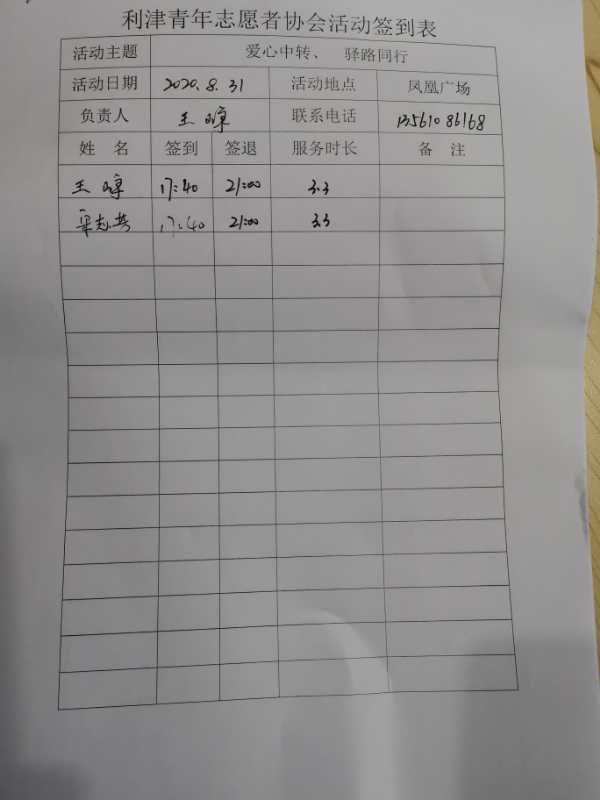 利津青年志愿者协会活动签到表
活动主题 爱心中转、 驿路同行
活动日期 2020.8.31 活动地点 凤凰广场
负责人 王 联系电话 13561086168
姓 名 签到 签退 服务时长 备 注
王 17:40 21:00 3.3
17:40 21:00 3.3